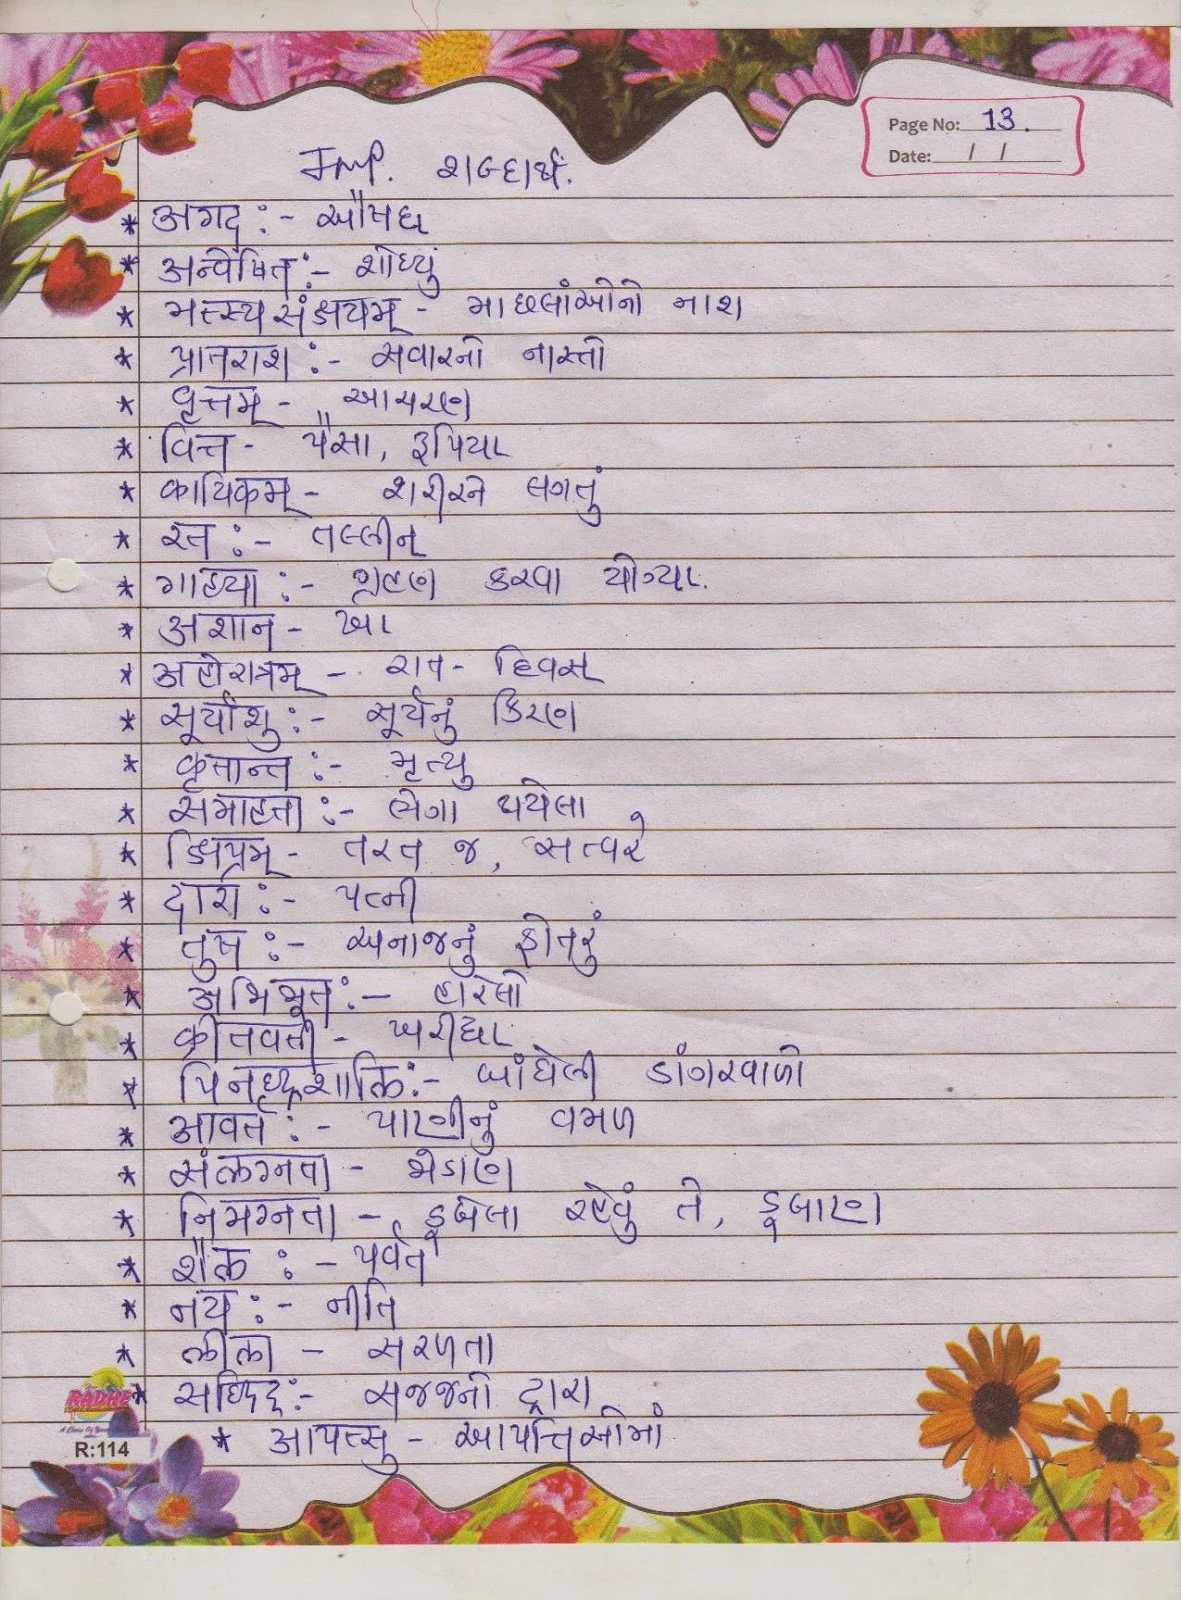 Page No: 13.
Date: / /
Imp. શબ્દાર્થ.
* अगद : - ઔષધ
* अन्वेषित : - શોધ્યું
* मत्स्यसंक्षयम् - માછલાંઓનો નાશ
* प्रातराश : - સવારનો નાસ્તો
* वृत्तम् - આચરણ
* वित्त - પૈસા, રૂપિયા
* कायिकम् - શરીરને લગતું
* रत : - તલ્લીન
* गाह्या : - ગ્રહણ કરવા યોગ્ય.
* अशान - ખા
* अहोरात्रम् - રાત - દિવસ
* सूर्यांशु : - સૂર્યનું કિરણ
* कृतान्त : - મૃત્યુ
* समाहता : - ભેગા થયેલા
* क्षिप्रम् - તરત જ, સત્વરે
* दारा : - પત્ની
* तुष : - અનાજનું ફોતરું
* अभिभूत : - હારેલો
* क्रीतवती - ખરીદ્યા
* पिनद्धशालि : - બાંધેલી ડાંગરવાળો
* आवर्त : - પાણીનું વમળ
* संलग्नता - જોડાણ
* निमग्नता - ડૂબેલા રહેવું તે, ડૂબાણ
* शैल : - પર્વત
* नय : - નીતિ
* लीला - સરળતા
* सद्भिद : - સજ્જનો દ્વારા
* आपत्सु - આપત્તિઓમાં
RADHE
R:114